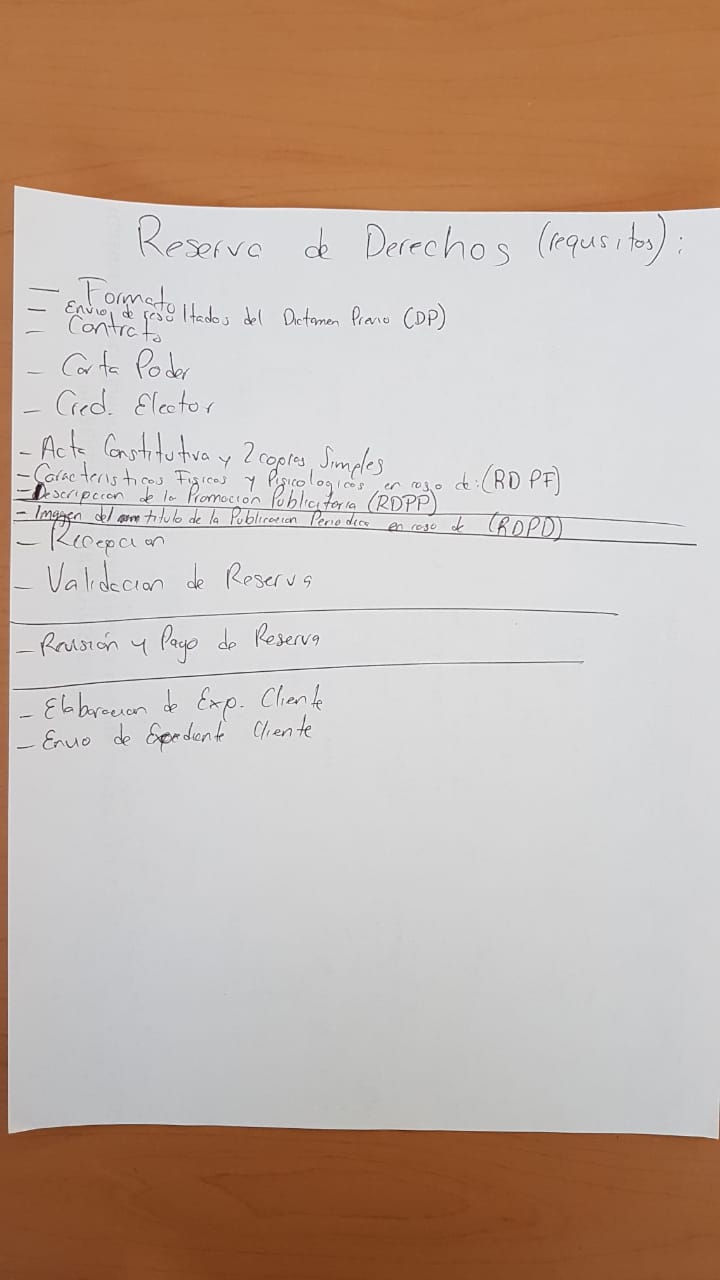 Reserva de Derechos (requsitos):
- Formato
- Envio de resultados del Dictamen Previo (DP)
- Contrato
- Carta Poder
- Cred. Elector
- Acta Constitutiva y 2 copias Simples
- Caracteristicos Fisicos y Pisicologicos en caso de: (RD PF)
- Descripcion de la Promocion Publicitaria (RDPP)
- Imagen del titulo de la Publicacion Periodica en caso de (RDPD)
- Recepcion
- Validacion de Reserva
- Revisión y Pago de Reserva
- Elaboracion de Exp. Cliente
- Envio de Expediente Cliente